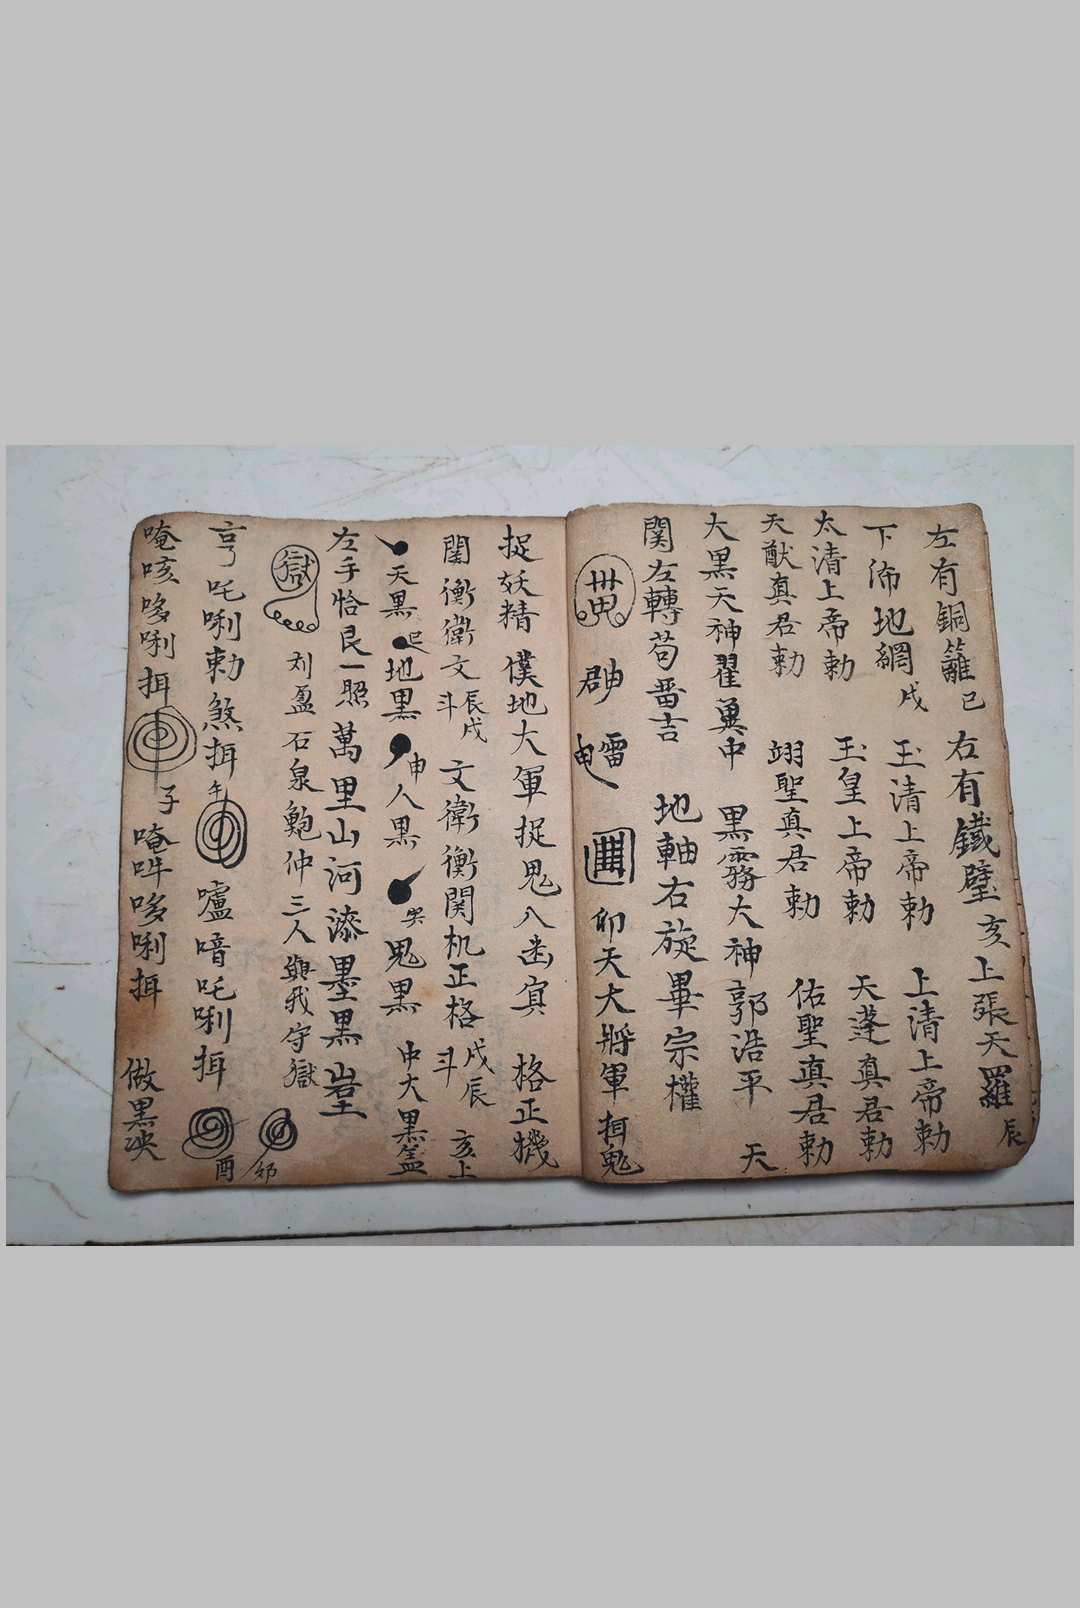 左有銅籬巳右有鐵壁亥上張天羅辰
下佈地網戌 玉清上帝勅 上清上帝勅
太清上帝勅 玉皇上帝勅 天蓬真君勅
天猷真君勅 翊聖真君勅 佑聖真君勅
大黑天神翟巢中 黑霧大神郭浩平 天
関左轉苟畨吉 地軸右旋畢宗權
卯天大將軍
捉妖精 僕地大軍捉鬼入幽冥 格正機
閨衡衛文斗辰戌 文衛衡関机正格斗戌辰 亥上
天黑 地黑申人黑 鬼黑 中大黑蓋
左手恰艮一照萬里山河漆墨黑
獄 刘盈石泉鮑仲三人與我守獄
吒唎勅煞挕午 嚧喑吒唎挕 酉
唵咳哆唎挕 子唵吽哆唎挕 做黑決